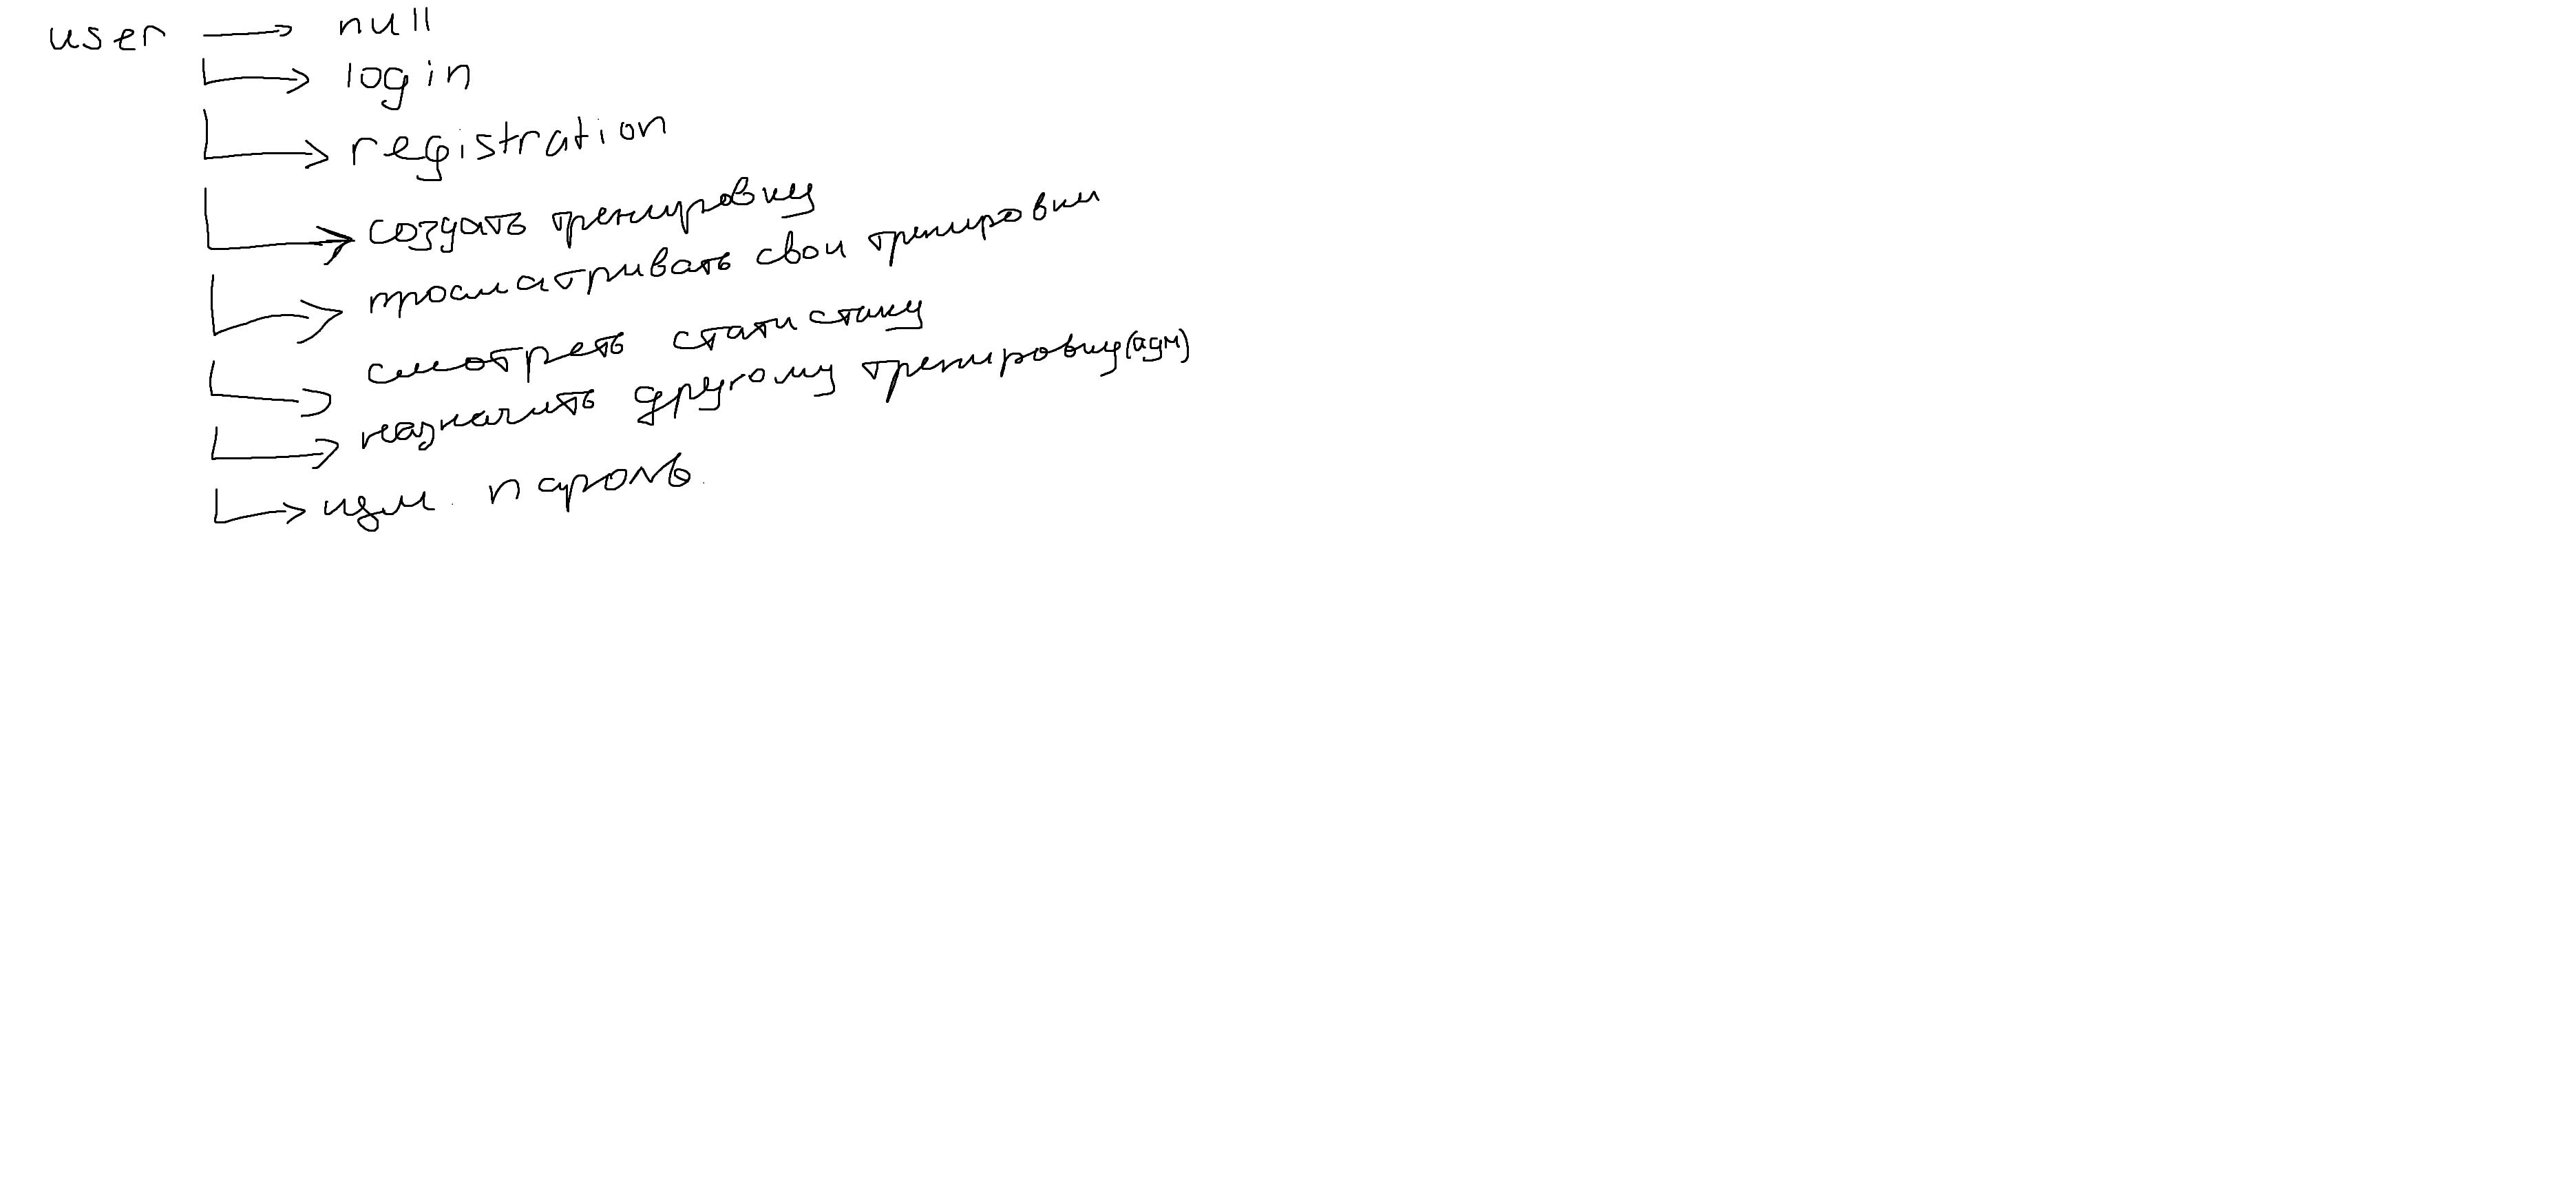 user → null
→ login
→ registration
→ создать тренировку
→ просматривать свои тренировки
→ смотреть статистику
→ назначить другому тренировку (адм)
→ изм. пароль